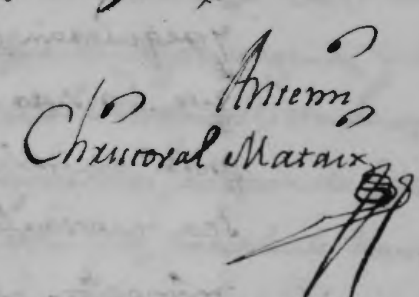 Antemi
Chriꞅtoval Mataix